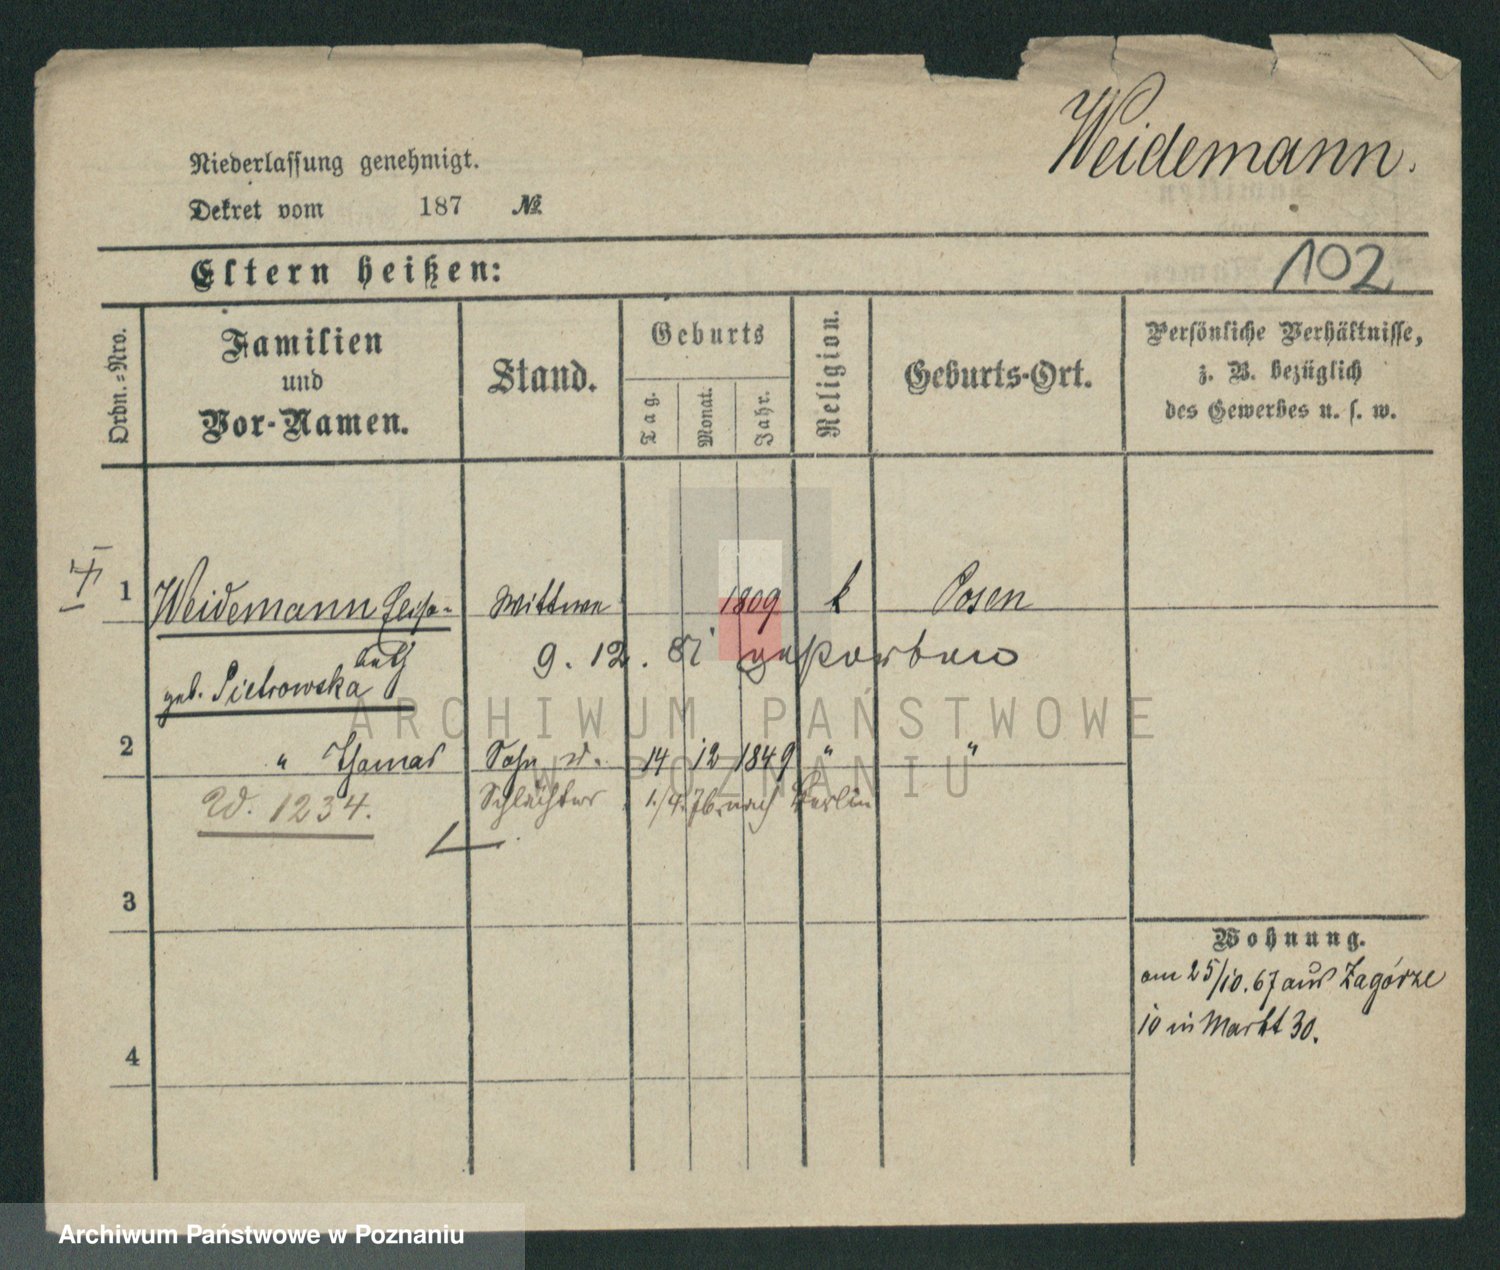 Weidemann.
Niederlassung genehmigt.
Dekret vom 187 №
Eltern heißen:
102
Ordn.=Nro.
Familien
und
Vor-Namen.
Stand.
Geburts
Tag.
Monat.
Jahr.
Religion.
Geburts-Ort.
Persönliche Verhältnisse,
z. B. bezüglich
des Gewerbes u. s. w.
1 Weidemann Wittwe 1809 k Posen
9. 12. 81 gestorben
geb. Pietrowska
2 " Thomas Sohn 14 12 1849 " "
1234. Schlächter 1/4. 76. nach Berlin
3
4
Wohnung.
am 25/10. 67 aus Zagórze
10 in Markt 30.
ARCHIWUM PAŃSTWOWE
W POZNANIU
Archiwum Państwowe w Poznaniu